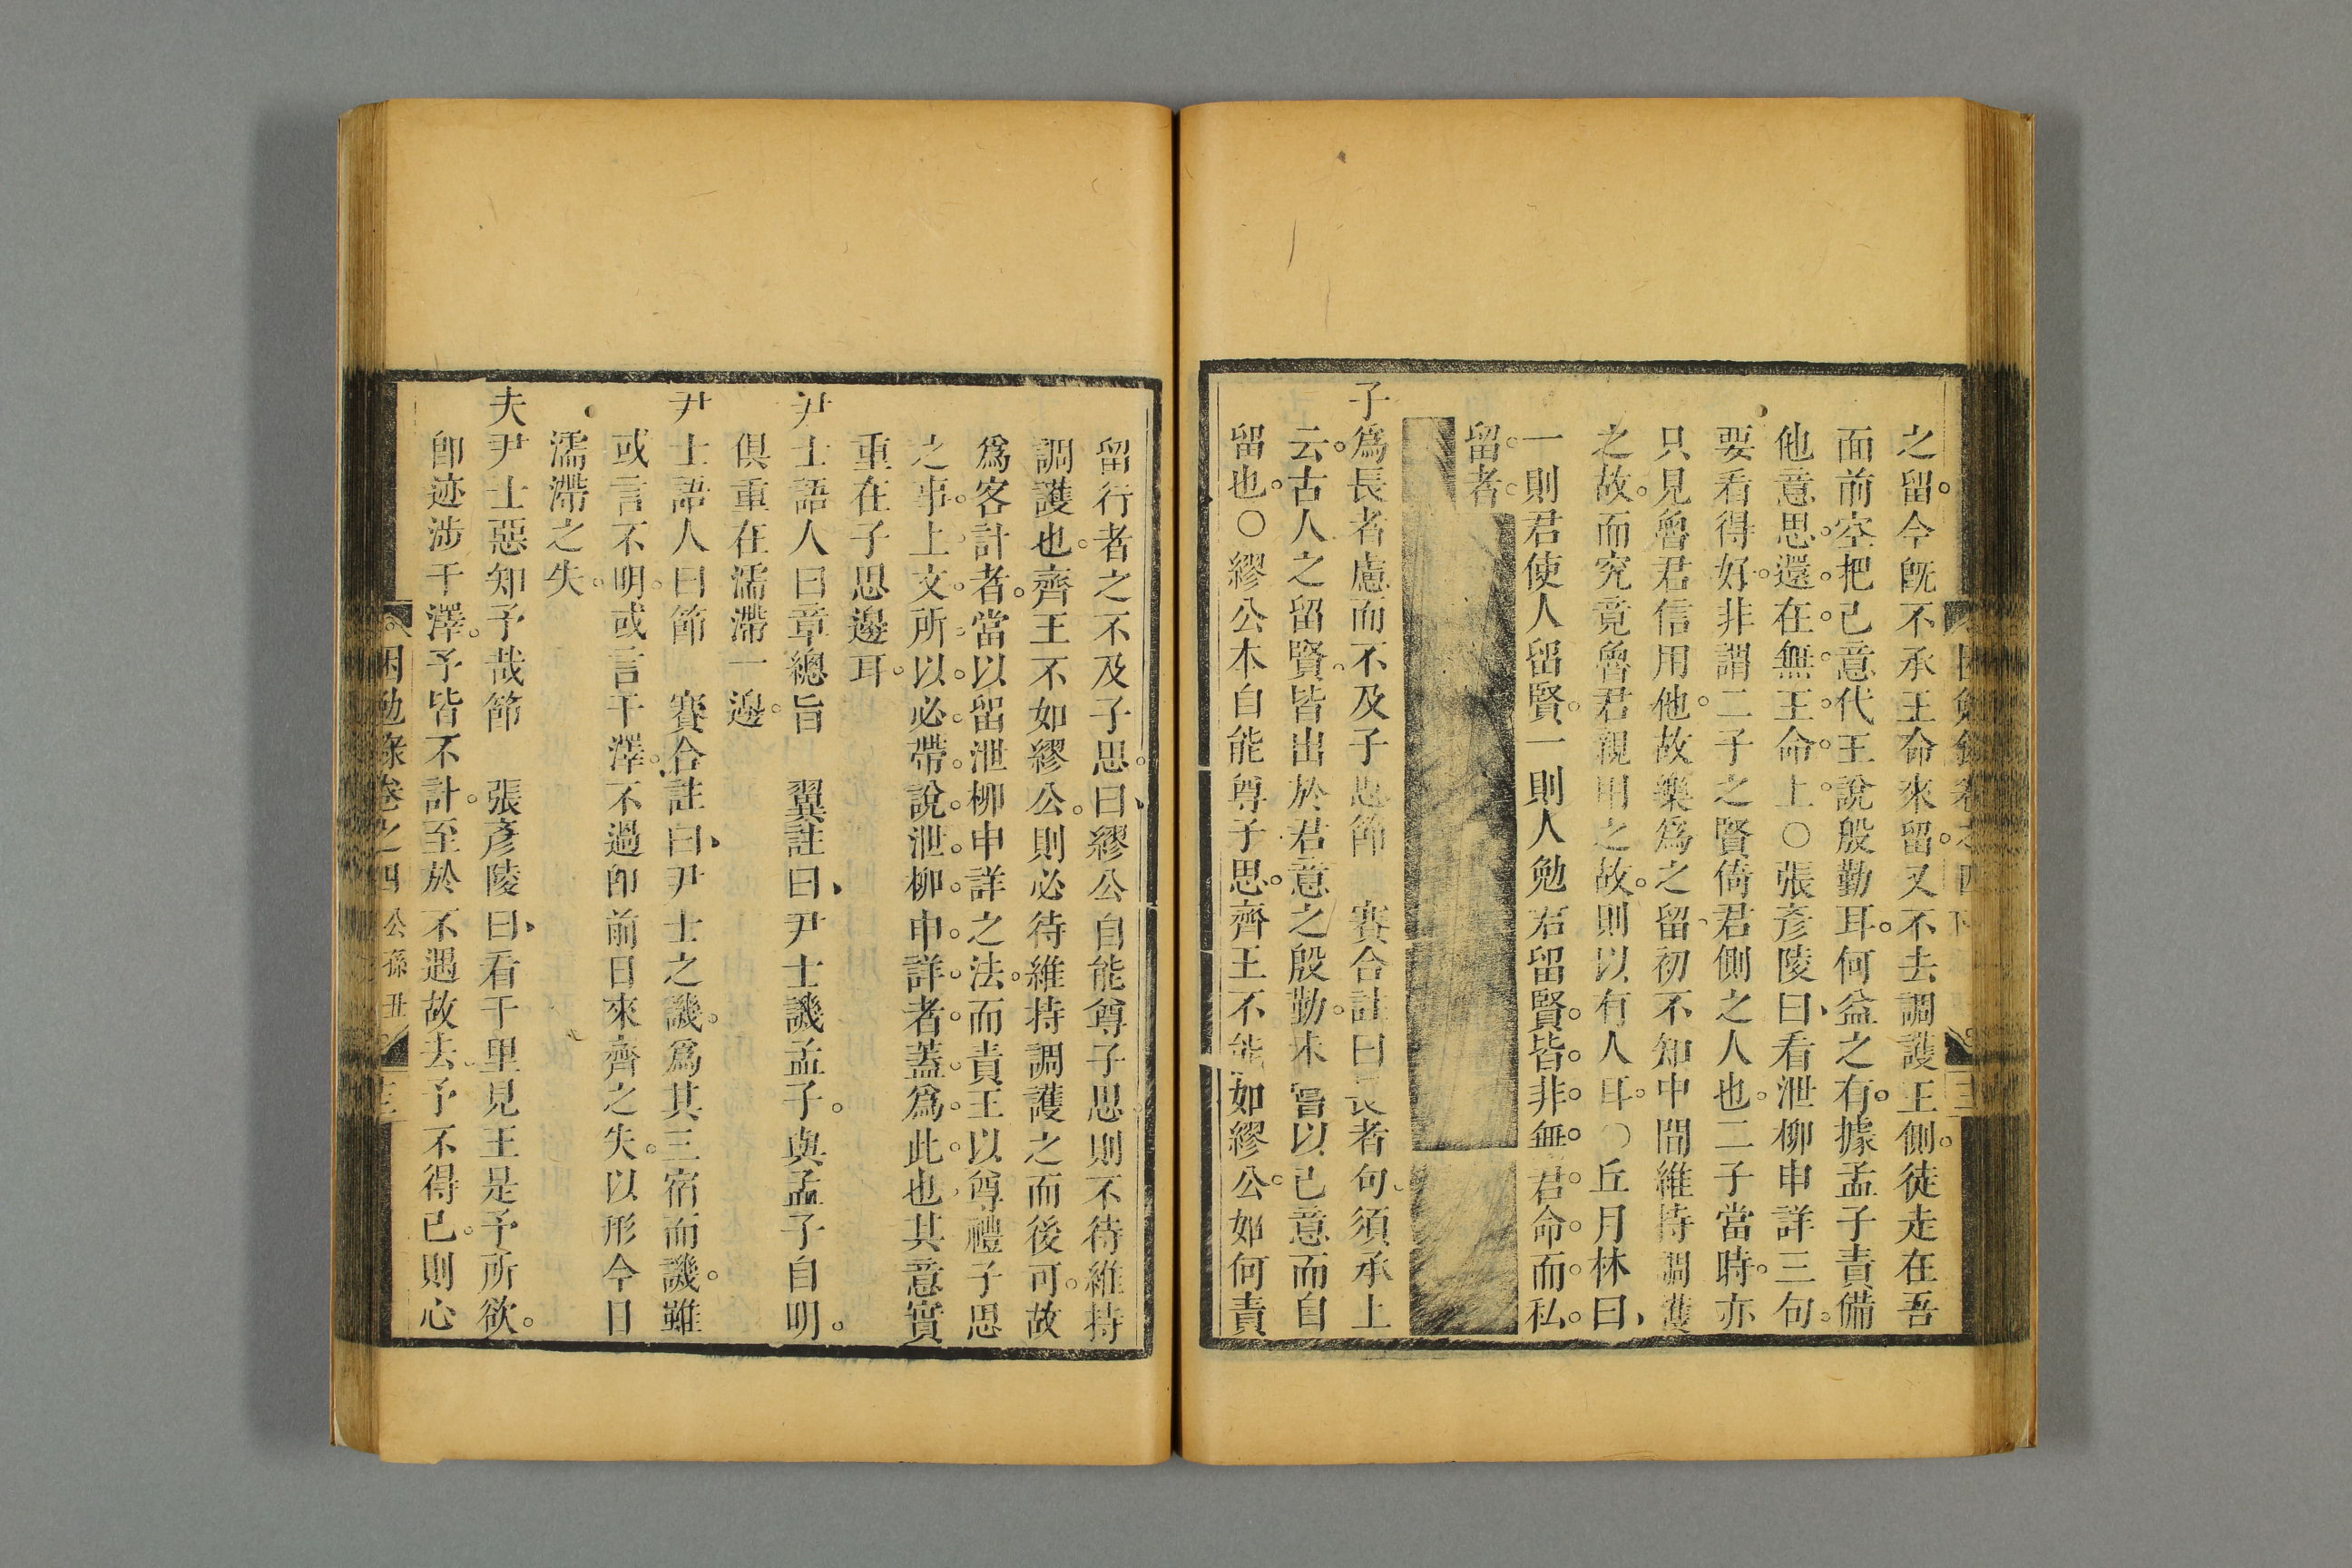 之留。今旣不承王命來留。又不去調護王側。徒走在吾
面前空把己意代王說殷勤耳。何益之有。據孟子責備
他意思。還。在。無。王。命。上。○張彥陵曰、看泄柳申詳三句。
要看得好。非謂二子之賢倚君側之人也。二子當時。亦
只見魯君信用他。故樂爲之留、初不知中間維持調護
之故。而究竟魯君親用之故。則以有人耳。○丘月林曰、
一則君使人留賢。一則人勉君留賢。皆。非。無。君。命。而。私。
留。者。
子爲長者慮而不及子思節 賽合註曰長者句、須承上
云。古人之留賢。皆出於君意之殷勤。未嘗以己意而自
留也。○繆公本自能尊子思。齊王不能如繆公。如何責
留行者之不及子思。曰、繆公自能尊子思。則不待維持
調護也。齊王不如繆公。則必待維持調護之而後可。故
爲客計者。當以留泄柳申詳之法。而責王以尊禮子思
之事。上、文。所。以。必。帶。說。泄。柳。申。詳。者。蓋。爲。此。也、其意實
重在子思邊耳。
尹士語人曰章總旨 翼註曰、尹士譏孟子。與孟子自明。
俱重在濡滯一邊。
尹士語人曰節 賽合註曰、尹士之譏。爲其三宿而譏。雖
或言不明。或言干澤。不過卽前日來齊之失。以形今日
濡滯之失。
夫尹士惡知予哉節 張彥陵曰、看千里見王是予所欲。
卽迹涉干澤。予皆不計。至於不遇故去。予不得已。則心
困勉錄卷之四 公孫丑